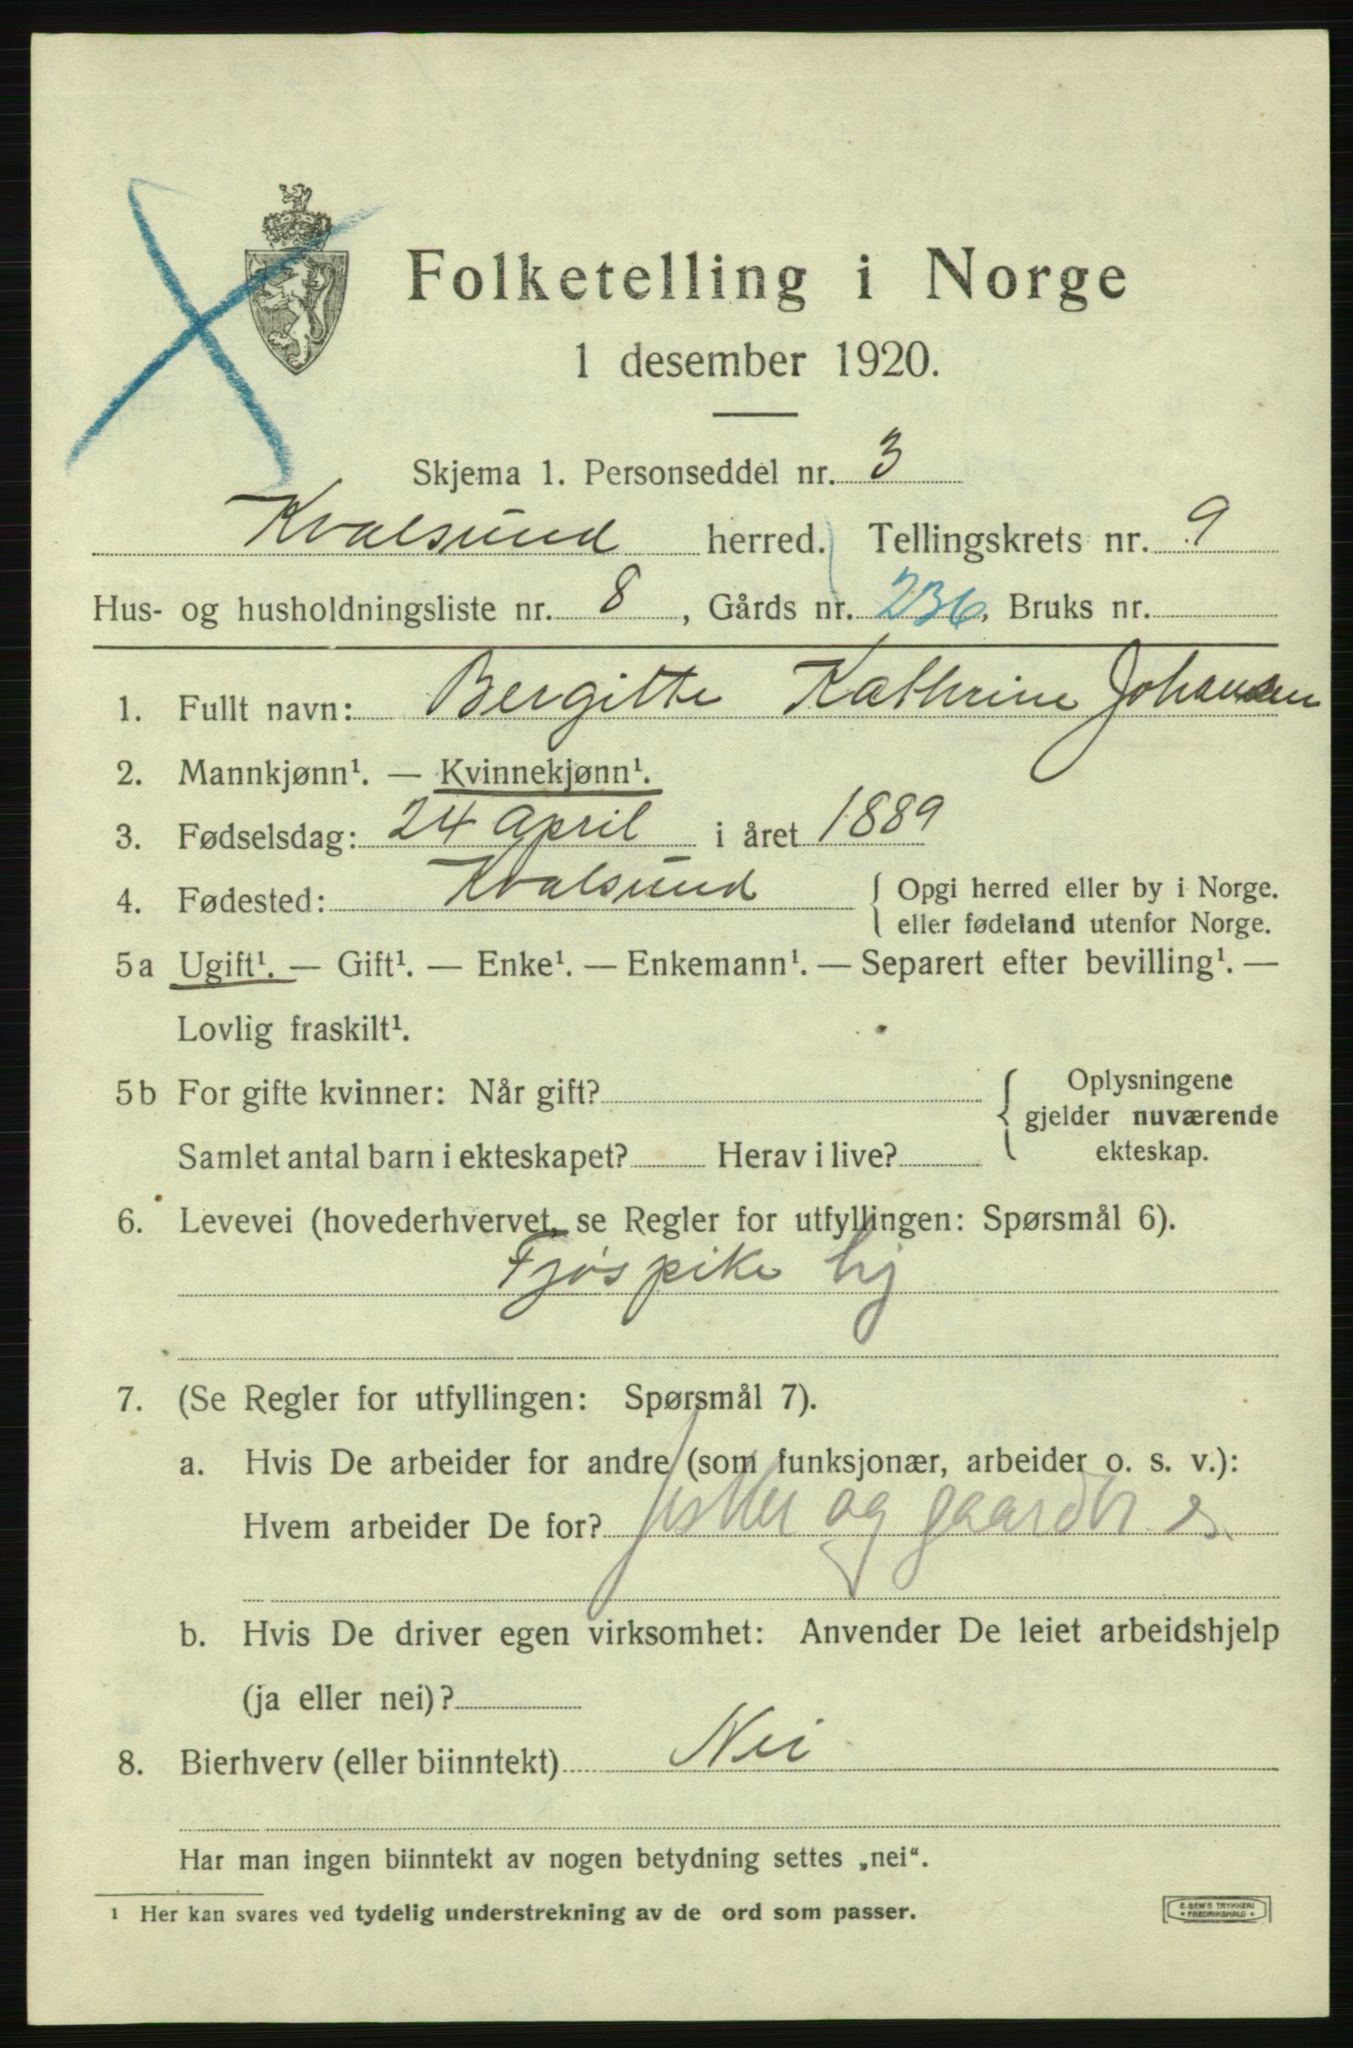 Folketelling i Norge
1 desember 1920.
Skjema 1. Personseddel nr. 3
Kvalsund herred. Tellingskrets nr. 9
Hus- og husholdningsliste nr. 8, Gårds nr. 236, Bruks nr.
1. Fullt navn: Bergitte Kathrine Johansen
2. Mannkjønn¹. — Kvinnekjønn¹.
3. Fødselsdag: 24 april i året 1889
4. Fødested: Kvalsund { Opgi herred eller by i Norge.
eller fødeland utenfor Norge.
5a Ugift¹. — Gift¹. — Enke¹. — Enkemann¹. — Separert efter bevilling¹. —
Lovlig fraskilt¹.
5b For gifte kvinner: Når gift? { Oplysningene
gjelder nuværende
Samlet antal barn i ekteskapet? Herav i live? ekteskap.
6. Levevei (hovederhvervet, se Regler for utfyllingen: Spørsmål 6).
Fjøspike hj
7. (Se Regler for utfyllingen: Spørsmål 7).
a. Hvis De arbeider for andre (som funksjonær, arbeider o. s. v.):
Hvem arbeider De for? fisker og gaardbr. s.
b. Hvis De driver egen virksomhet: Anvender De leiet arbeidshjelp
(ja eller nei)?
8. Bierhverv (eller biinntekt) Nei
Har man ingen biinntekt av nogen betydning settes „nei“.
¹ Her kan svares ved tydelig understrekning av de ord som passer.
E. SEM'S TRYKKERI
* FREDRIKSHALD *